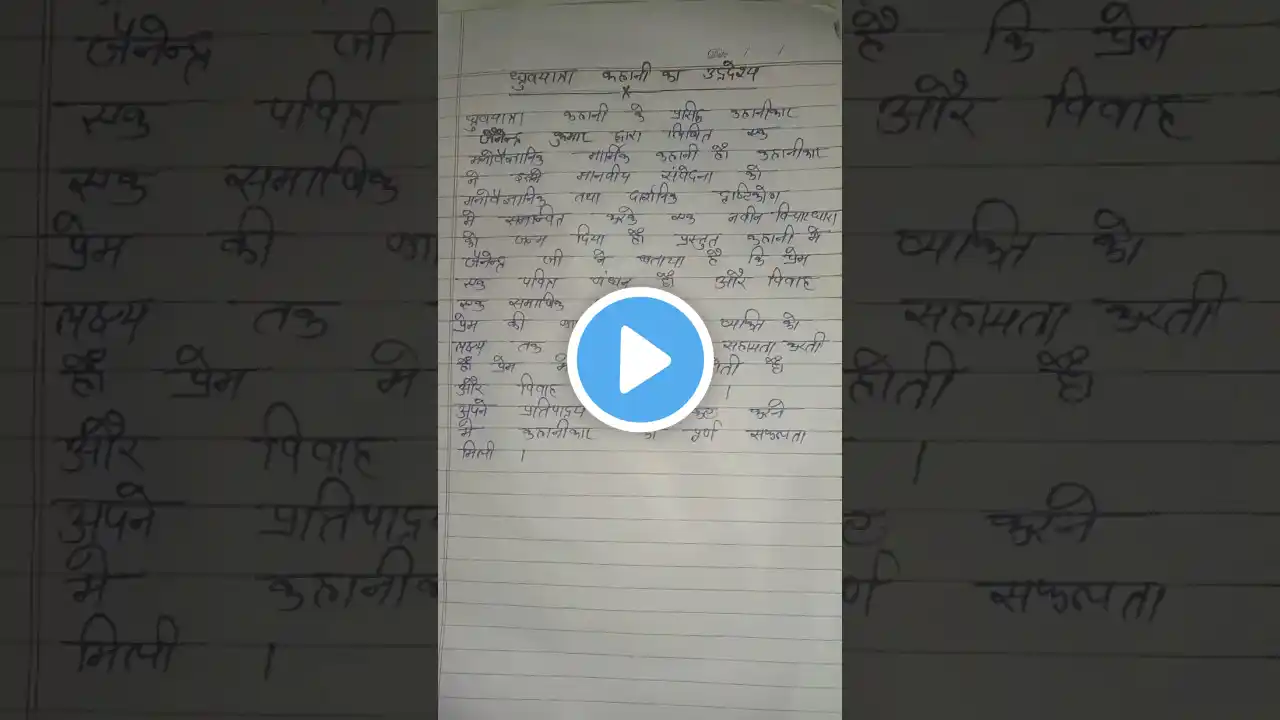 ध्रुवयात्रा कहानी का उद्देश्य
ध्रुवयात्रा कहानी के प्रसिद्ध कहानीकार
जैनेन्द्र कुमार द्वारा लिखित एक
मनोवैज्ञानिक मार्मिक कहानी है। कहानीकार
ने इसमें मानवीय संवेदना को
मनोवैज्ञानिक तथा दार्शनिक दृष्टिकोण
में समन्वित करके एक नवीन विचारधारा
को जन्म दिया है। प्रस्तुत कहानी में
जैनेन्द्र जी ने बताया है कि प्रेम
एक पवित्र बंधन है और विवाह
एक समाजिक
प्रेम की व्यक्ति को
लक्ष्य तक सहायता करती
है। प्रेम में होती है
और विवाह ।
अपने प्रतिपाद्य करने
में कहानीकार को पूर्ण सफलता
मिली ।